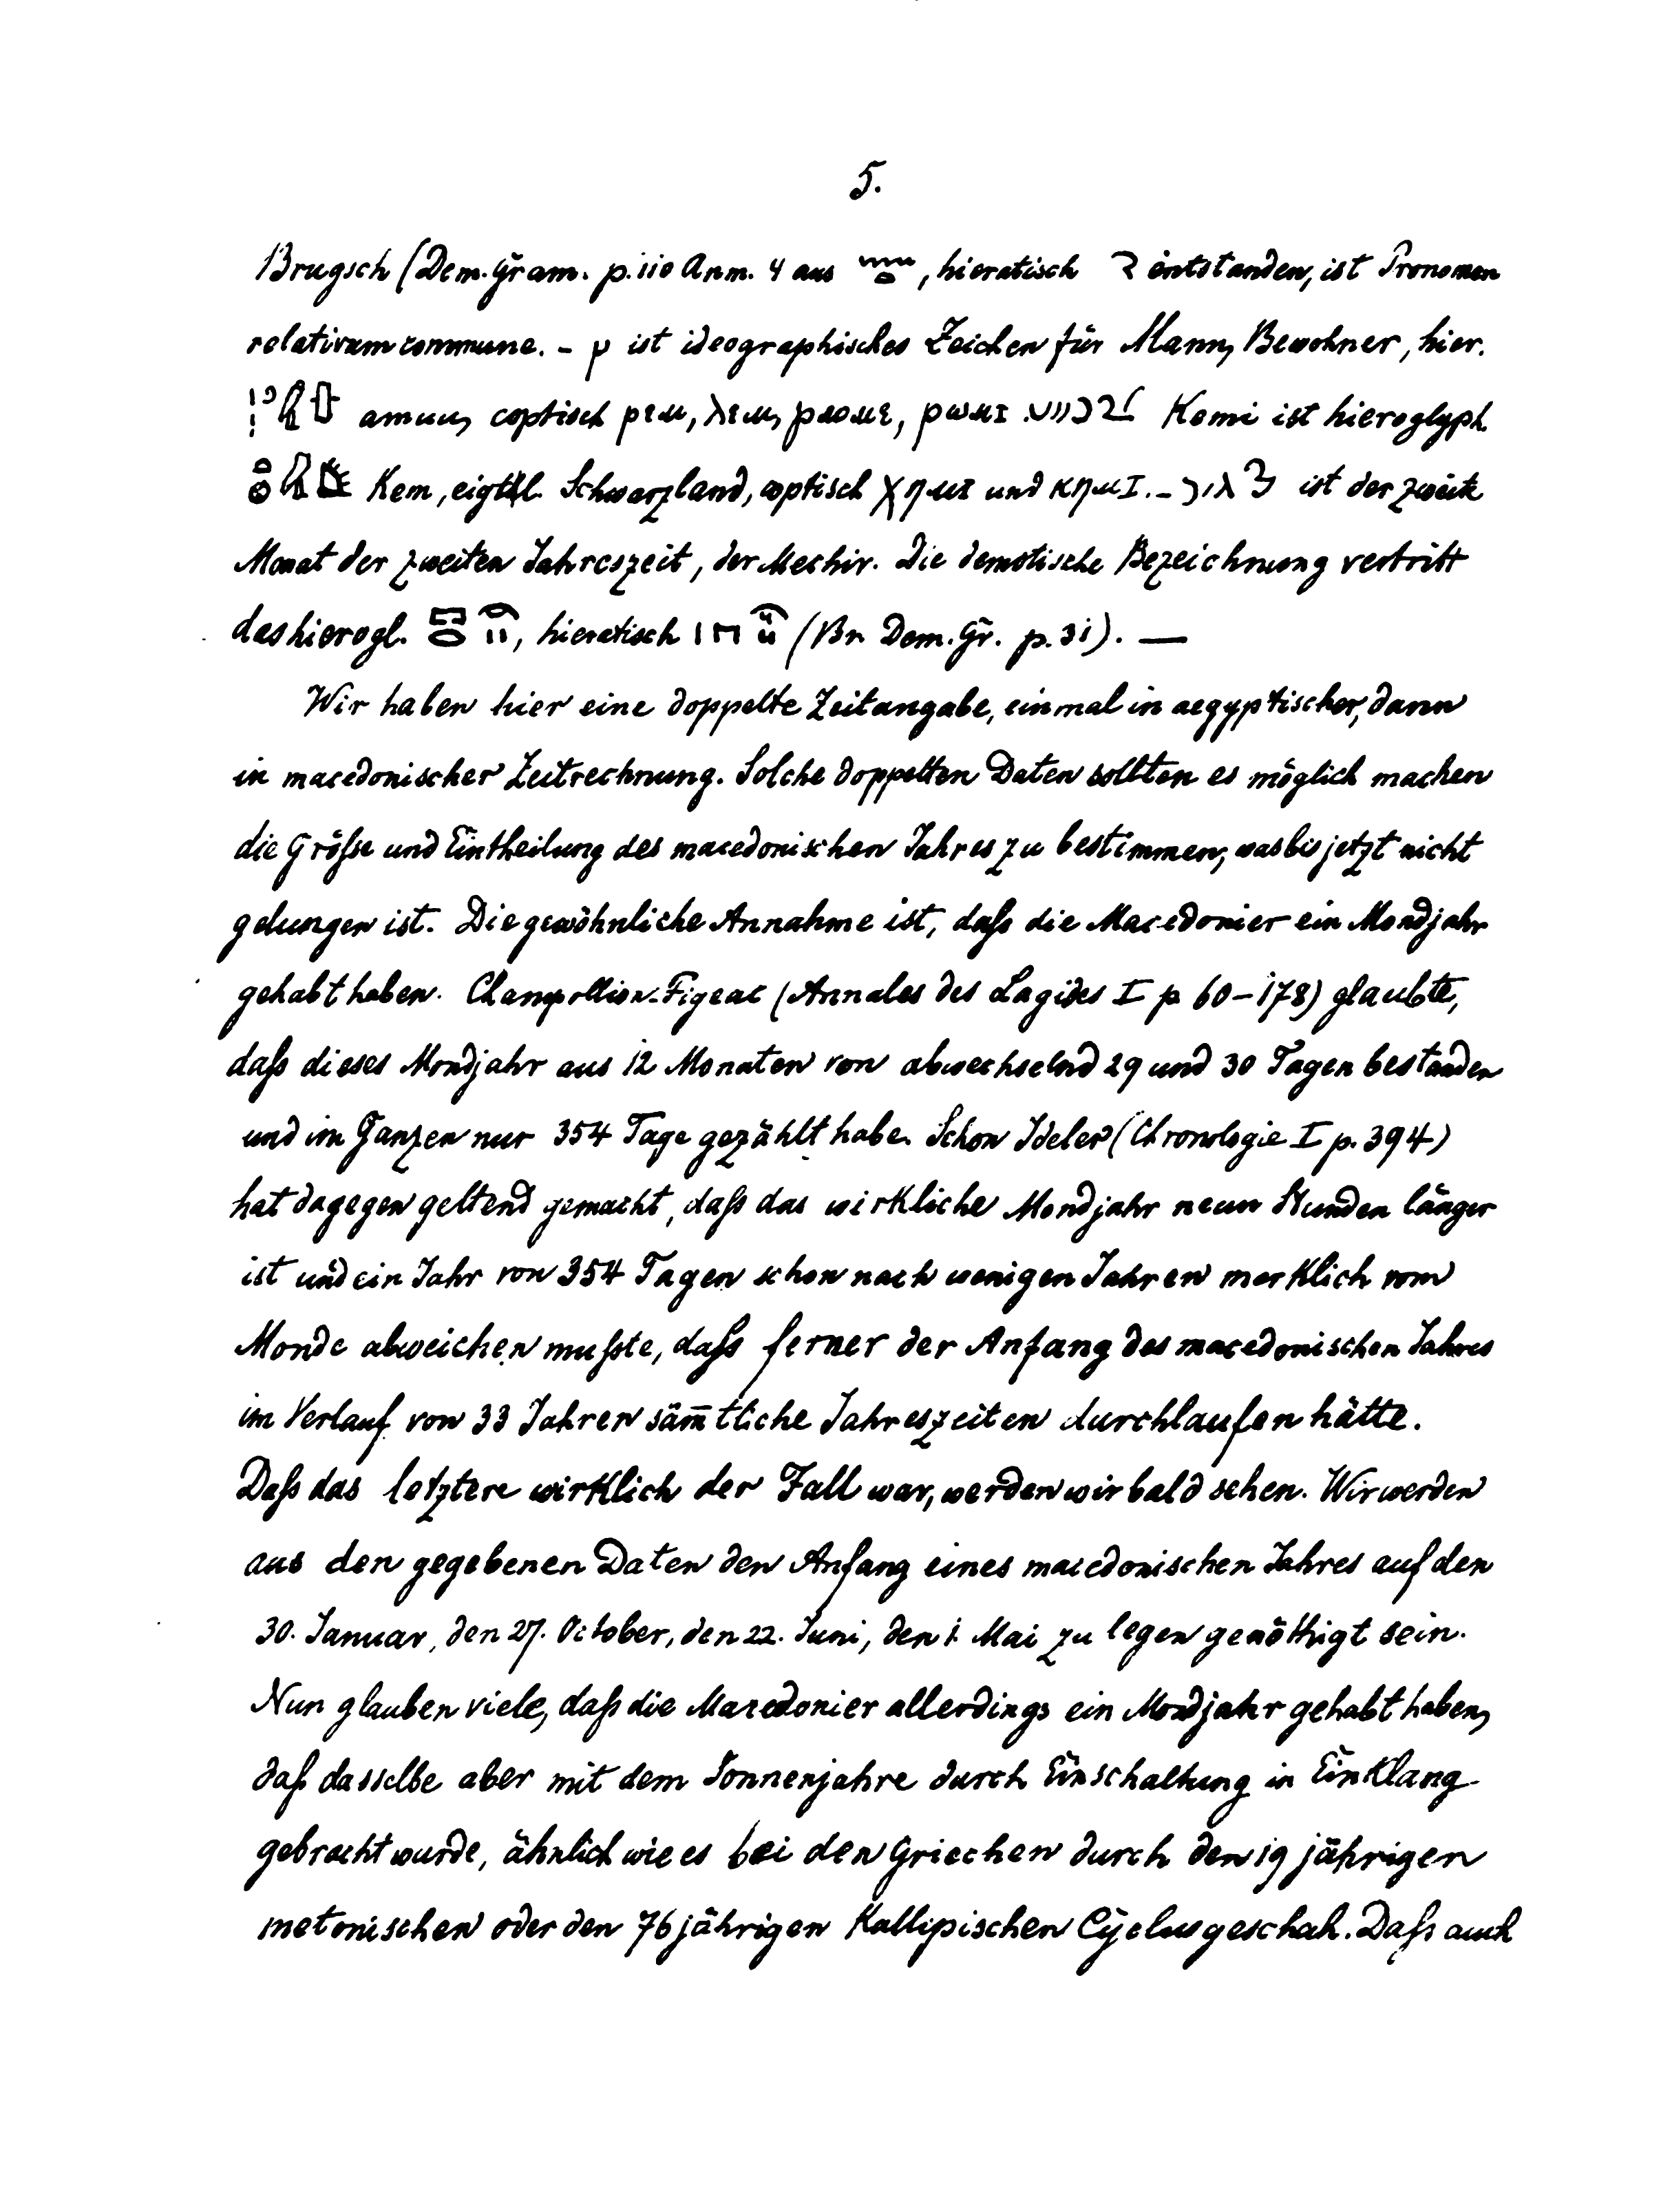 5.
Brugsch (Dem. Gram. p. 110 Anm. 4 aus , hieratisch entstanden, ist Pronomen
relativum commune. – ist ideographisches Zeichen für Mann, Bewohner, hier.
amuu, coptisch ⲣⲉⲙ, ⲗⲉⲙ, , ⲣⲱⲙⲓ. Kemi ist hieroglyph.
Kem, eigtl. Schwarzland, coptisch ⲭⲏⲙⲓ und ⲕⲏⲙⲓ. – ist der zweite
Monat der zweiten Jahreszeit, der Mechir. Die demotische Bezeichnung vertritt
das hierogl. , hieratisch (Br. Dem. Gr. p. 31). —
Wir haben hier eine doppelte Zeitangabe, einmal in aegyptischer, dann
in macedonischer Zeitrechnung. Solche doppelten Daten sollten es möglich machen
die Größe und Eintheilung des macedonischen Jahres zu bestimmen, was bis jetzt nicht
gelungen ist. Die gewöhnliche Annahme ist, daß die Macedonier ein Mondjahr
gehabt haben. Champollion-Figeac (Annales des Lagides I p 60–178) glaubte,
daß dieses Mondjahr aus 12 Monaten von abwechselnd 29 und 30 Tagen bestanden
und im Ganzen nur 354 Tage gezählt habe. Schon Ideler (Chronologie I p. 394)
hat dagegen geltend gemacht, daß das wirkliche Mondjahr neun Stunden länger
ist und ein Jahr von 354 Tagen schon nach wenigen Jahren merklich vom
Monde abweichen mußte, daß ferner der Anfang des macedonischen Jahres
im Verlauf von 33 Jahren säm̅tliche Jahreszeiten durchlaufen hätte.
Daß das letztere wirklich der Fall war, werden wir bald sehen. Wir werden
aus den gegebenen Daten den Anfang eines macedonischen Jahres auf den
30. Januar, den 27. October, den 22. Juni, den 1. Mai zu legen genöthigt sein.
Nun glauben viele, daß die Macedonier allerdings ein Mondjahr gehabt haben,
daß dasselbe aber mit dem Sonnenjahre durch Einschaltung in Einklang
gebracht wurde, ähnlich wie es bei den Griechen durch den 19 jährigen
metonischen oder den 76 jährigen Kallipischen Cyclus geschah. Daß auch